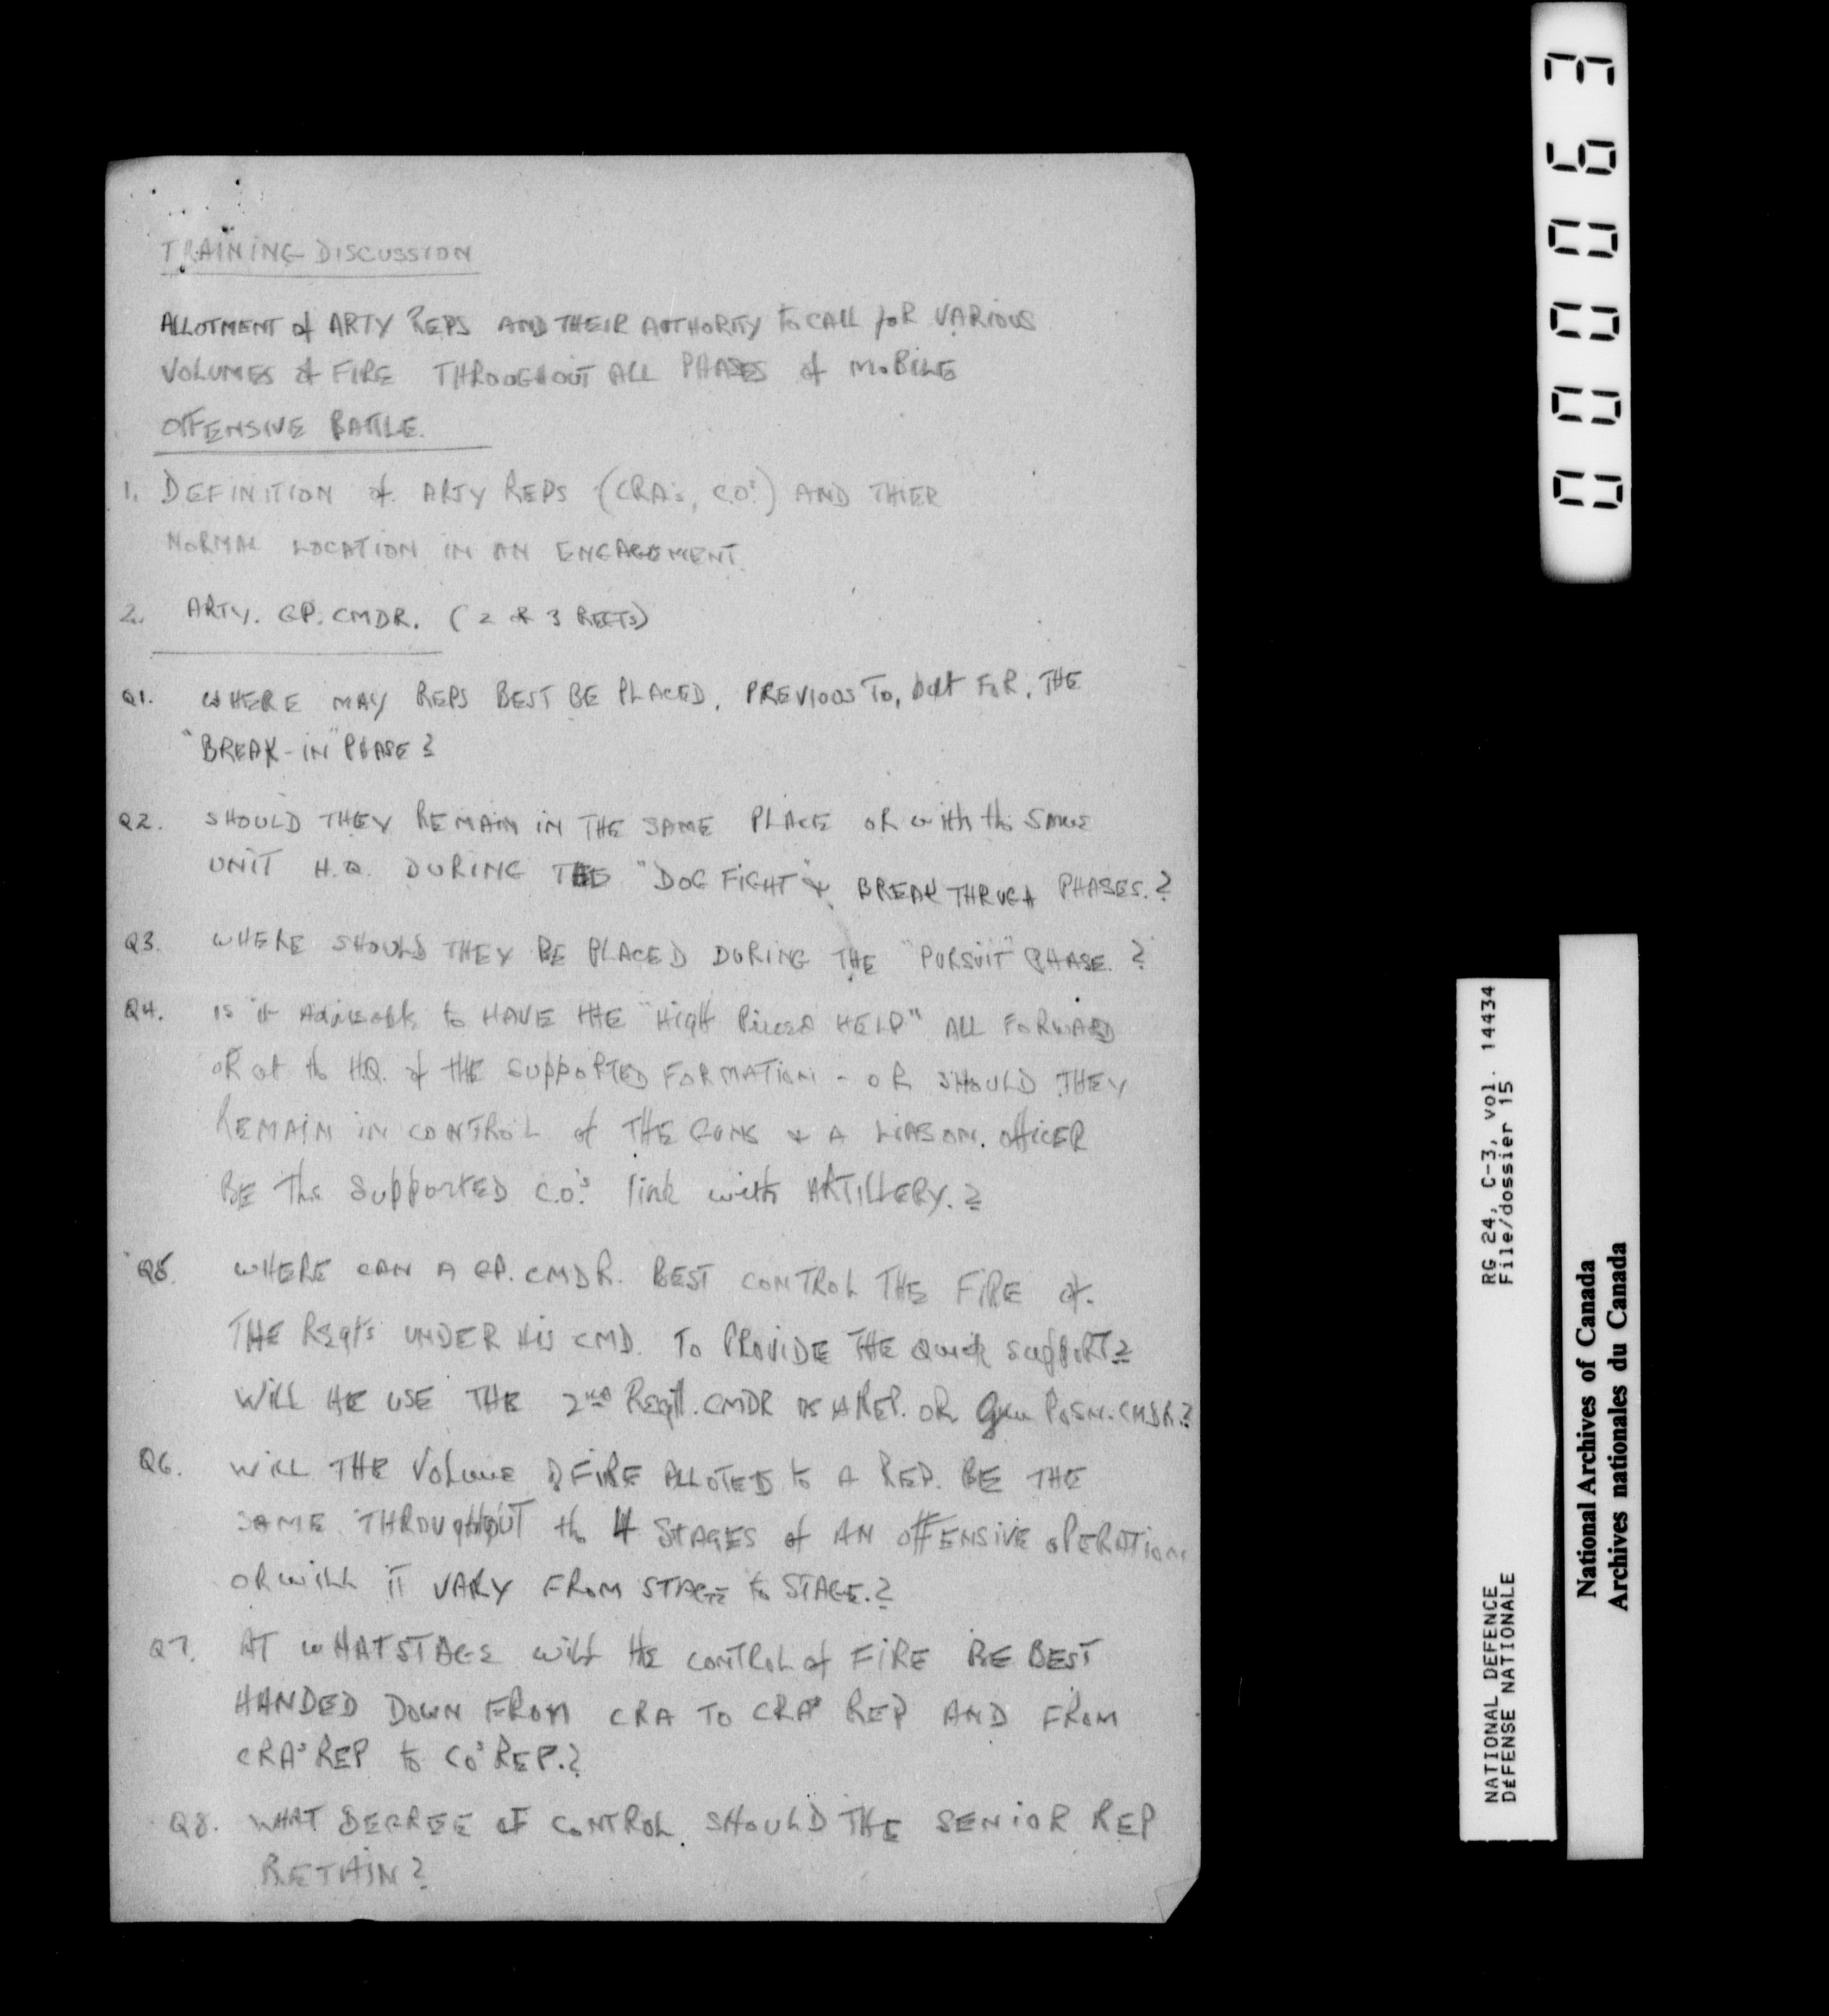 TRAINING DISCUSSION
ALLOTMENT of ARTY REPS AND THEIR AUTHORITY to CALL for VARIOUS
VOLUMES of FIRE THROUGHOUT ALL PHASES of MOBILE
OFFENSIVE BATTLE.
1. DEFINITION of ARTY REPS (CRA's, CO's) AND THIER
NORMAL LOCATION IN AN ENGAGEMENT.
2. ARTY. GP. CMDR. (2 or 3 REGTS)
Q1. WHERE MAY REPS BEST BE PLACED, PREVIOUS TO, but FOR, THE
"BREAK-IN" PHASE?
Q2. SHOULD THEY REMAIN IN THE SAME PLACE OR with the SAME
UNIT H.Q. DURING THE "DOG FIGHT" & BREAK THRUGH PHASES.?
Q3. WHERE SHOULD THEY BE PLACED DURING THE "PURSUIT" PHASE.?
Q4. IS it Advisable to HAVE THE "High Priced HELP" ALL FORWARD
OR at the HQ. of THE SUPPORTED FORMATION - OR SHOULD THEY
REMAIN IN CONTROL of THE GUNS & A LIASON. OFFICER
BE The SUPPORTED C.O's link with ARTILLERY.?
Q5. WHERE CAN A GP. CMDR. BEST CONTROL THE FIRE of.
THE Regts UNDER His CMD. TO PROVIDE THE Quick SUPPORT?
WILL HE USE THE 2nd Regtl. CMDR AS A REP. OR Gun POSN. CMDR.?
Q6. WILL THE Volume of FIRE ALLOTED to A REP. BE THE
SAME THROUGHOUT the 4 STAGES of AN OFFENSIVE OPERATION
OR WILL IT VARY FROM STAGE to STAGE.?
Q7. AT WHAT STAGE will THE CONTROL of FIRE BE BEST
HANDED DOWN FROM CRA TO CRA's REP AND FROM
CRA's REP to CO's REP.?
Q8. WHAT DEGREE OF CONTROL SHOULD THE SENIOR REP
RETAIN?
000063
NATIONAL DEFENCE RG 24, C-3, vol. 14434
DéFENSE NATIONALE File/dossier 15
National Archives of Canada
Archives nationales du Canada